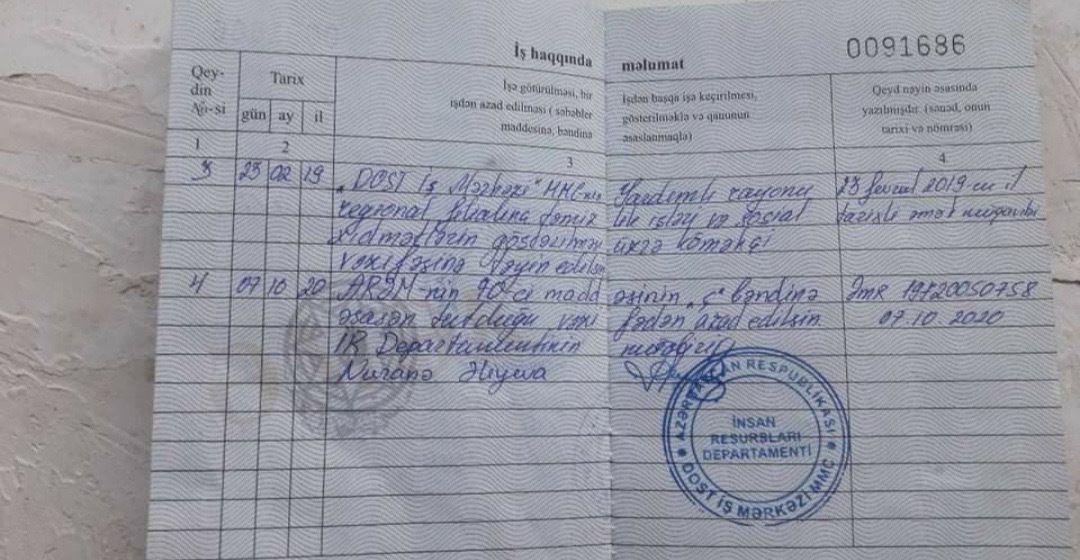 İş haqqında məlumat
0091686
Qey-
din
№-si
Tarix
gün ay il
İşə götürülməsi, bir
işdən azad edilməsi ( səbəblər
maddəsinə, bəndinə
İşdən başqa işə keçirilməsi,
göstərilməklə və qanunun
əsaslanmaqla)
Qeyd nəyin əsasında
yazılmışdır. (sənəd, onun
tarixi və nömrəsi)
1 2 3 4
3 23 02 19 „DOST İş Mərkəzi" MMC-nin Yardımlı rayonu 23 fevral 2019-cu il
regional filialına təmiz işləri və sosial tarixli əmək müqaviləsi
xidmətlərin göstərilməsi üzrə köməkçi
vəzifəsinə təyin edilsin
4 07 10 20 ARƏM-nin 70-ci maddəsinin „ç" bəndinə Əmr 19120050758
əsasən tutduğu vəzifədən azad edilsin. 07.10.2020
IR Departamentinin
Nuranə Əliyeva
AZƏRBAYCAN RESPUBLİKASI
İNSAN
RESURSLARI
DEPARTAMENTİ
DOST İŞ MƏRKƏZİ MMC